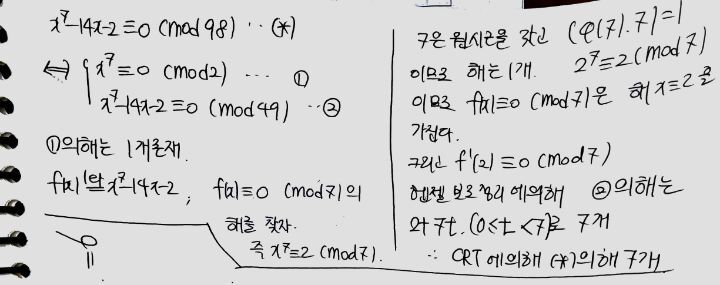 x⁷-14x-2≡0 (mod 98) ‥ (*)
⇔ { x⁷≡0 (mod 2) ‥‥ ①
x⁷-14x-2≡0 (mod 49) ‥②
①의해는 1개존재.
f(x) x⁷-14x-2, f(x)≡0 (mod 7)의
해를 찾자.
즉 x⁷≡2 (mod 7).
7은 원시근을 갖고 (φ(7),7)=1
이므로 해는 1개. 2⁷≡2 (mod 7)
이므로 f(x)≡0 (mod 7)은 해 x≡2 를
가진다.
그리고 f'(2)≡0 (mod 7)
헨젤 보조정리 에의해 ②의해는
2+7t. (0≤t<7)로 7개
∴ CRT 에의해 (*)의해 7개